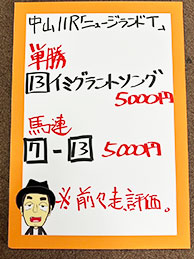 中山11R「ニュージランドT」
単勝
13イミグラントソング
5000円
馬連
7-13 5000円
※前々走評価。